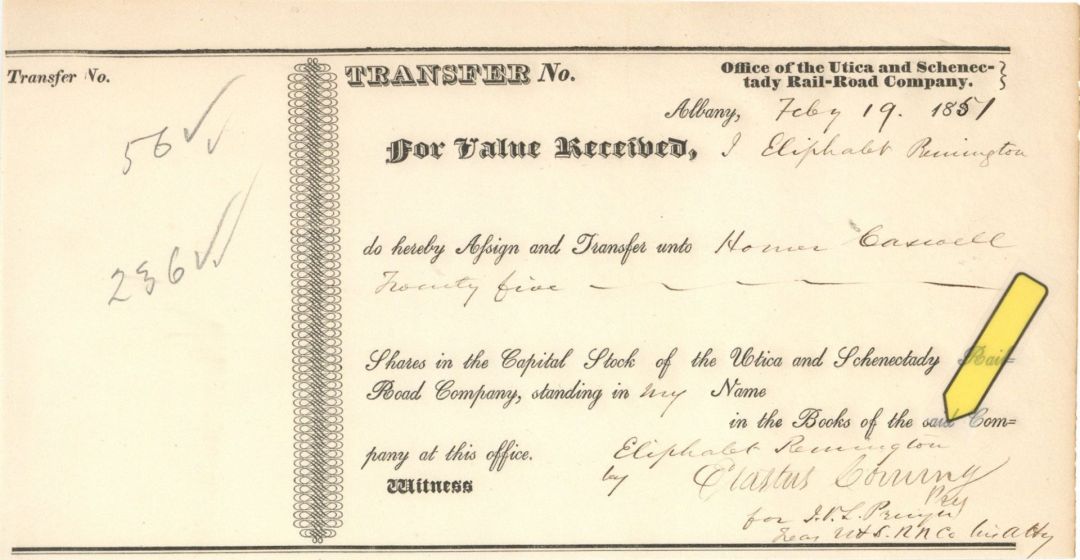 Transfer No.
56
236
TRANSFER No.
Office of the Utica and Schenec-
tady Rail-Road Company.
Albany, Feby 19. 1851
For Value Received, I Eliphalet Remington
do hereby Aſsign and Transfer unto Homer Caswell
Twenty five
Shares in the Capital Stock of the Utica and Schenectady Rail=
Road Company, standing in my Name
in the Books of the said Com=
pany at this office.
Eliphalet Remington
Witness
by Erastus Corning
for J.V.L. Pruyn
Treas U & S. RR Co his Atty